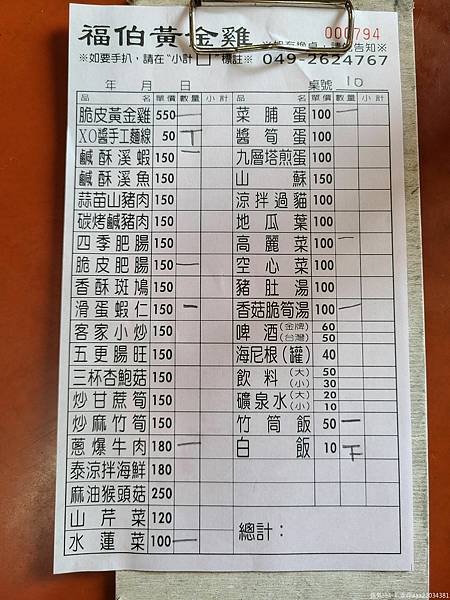 福伯黃金雞
000794
※如要手扒，請在“小計□”標註※ 049-2624767
年 月 日 桌號 10
品名 單價 數量 小計 品名 單價 數量 小計
脆皮黃金雞 550 一 菜脯蛋 100 一
XO醬手工麵線 50 丅 醬筍蛋 100
鹹酥溪蝦 150 一 九層塔煎蛋 100
鹹酥溪魚 150 山蘇 150
蒜苗山豬肉 150 涼拌過貓 100
碳烤鹹豬肉 150 地瓜葉 100
四季肥腸 150 高麗菜 100 一
脆皮肥腸 150 一 空心菜 100
香酥斑鳩 150 豬肚湯 100
滑蛋蝦仁 150 一 香菇脆筍湯 100 一
客家小炒 150 啤酒 (金牌) 60 (台灣) 50
五更腸旺 150 海尼根(罐) 40
三杯杏鮑菇 150 飲料 (大) 50 (小) 30
炒甘蔗筍 150 礦泉水 (大) 20 (小) 10
炒麻竹筍 150 竹筒飯 50 一
蔥爆牛肉 180 一 白飯 10 下
泰涼拌海鮮 180
麻油猴頭菇 250
山芹菜 120
水蓮菜 100 一 總計：